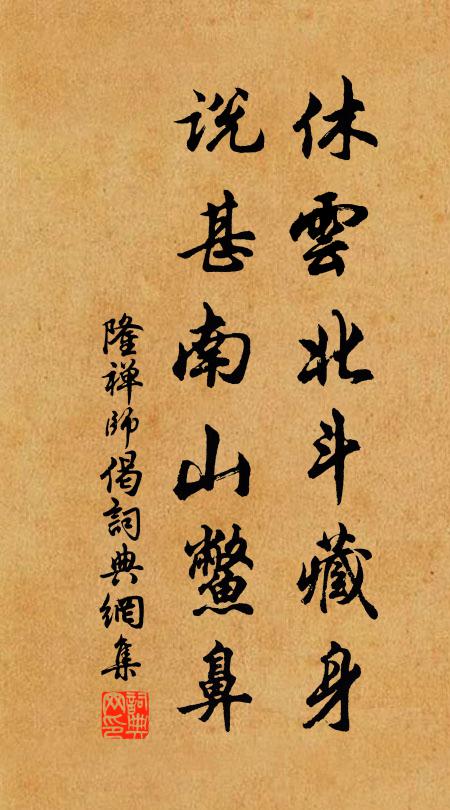 休雲北斗藏身
說甚南山鱉鼻
隆禪師偈詞典網集
詞典網印